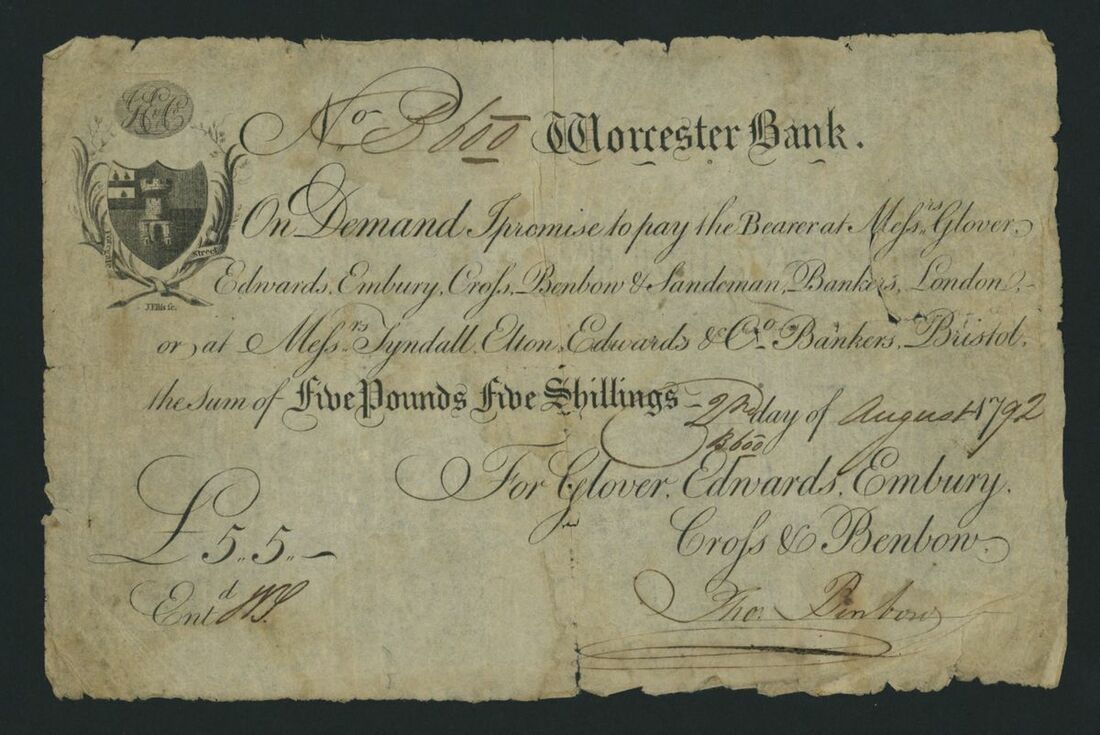 No. B600 Worcester Bank.
On Demand I promise to pay the Bearer at Mess.rs Glover,
Edwards, Embury, Cross, Benbow & Sandeman, Bankers, London,
or, at Mess.rs Tyndall, Elton, Edwards & Co. Bankers, Bristol,
the Sum of Five Pounds Five Shillings 2nd day of August 1792
B600
For Glover, Edwards, Embury,
Cross & Benbow.
£ 5.. 5.. —
Entd
Tho. Benbow
Street
J. Ellis sc.